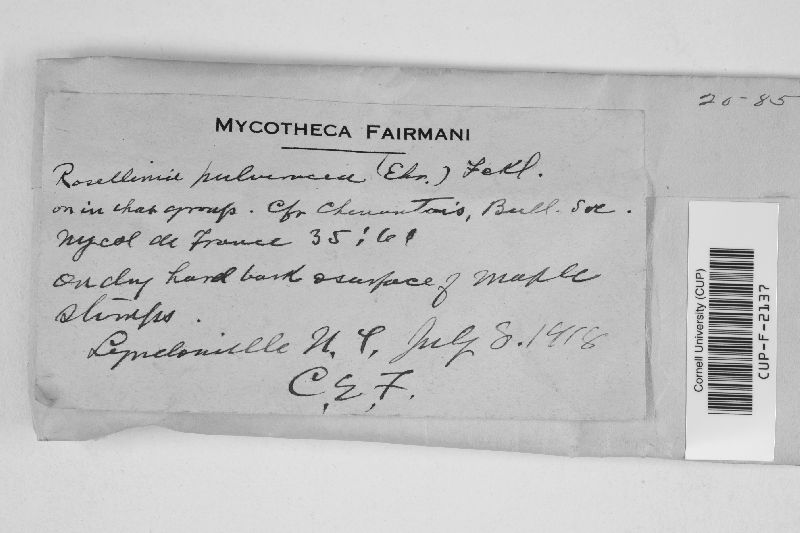 20-85
MYCOTHECA FAIRMANI
Rosellinia pulveracea (Ehr.) Fckl.
or in that group. Cfr Chenantais, Bull. Soc.
Mycol de France 35:61
On dry hard bark & surface of maple
stumps.
Lyndonville N.Y. July 8. 1918
C.E.F.
Cornell University (CUP)
CUP-F-2137